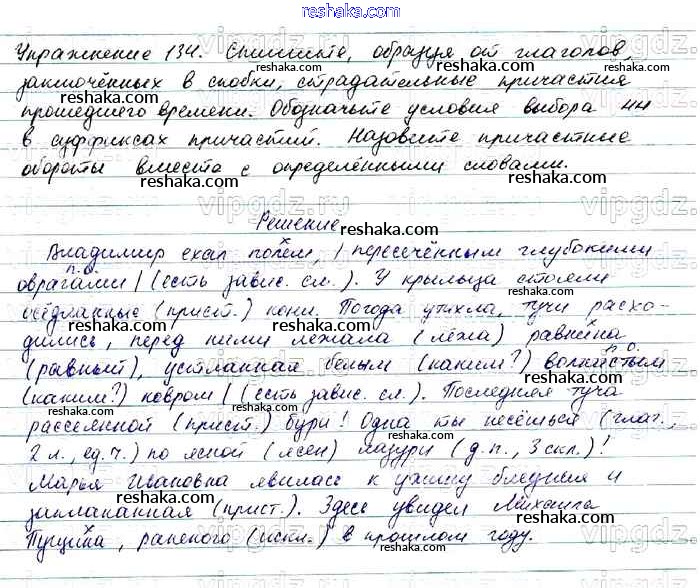 reshaka.com
Упражнение 134. Спишите, образуя от глаголов,
заключённых в скобки, страдательные причастия
прошедшего времени. Обозначьте условия выбора нн
в суффиксах причастий. Назовите причастные
обороты вместе с определёнными словами.
Решение
Владимир ехал полем, | пересечённым глубокими
п.о.
оврагами | (есть завис. сл.). У крыльца стояли
осёдланные (прист.) кони. Погода утихла, тучи расхо-
дились, перед ними лежала (лёжа) равнина
(равный), устланная белым (каким?) волнистым
п.о.
(каким?) ковром | (есть завис. сл.). Последняя туча
рассеянной (прист.) бури! Одна ты несёшься (глаг.,
2 л., ед.ч.) по ясной (ясен) лазури (д.п., 3 скл.)!
Марья Ивановна явилась к ужину бледная и
заплаканная (прист.). Здесь увидел Михаила
Пущина, раненого (искл.) в прошлом году.
reshaka.com